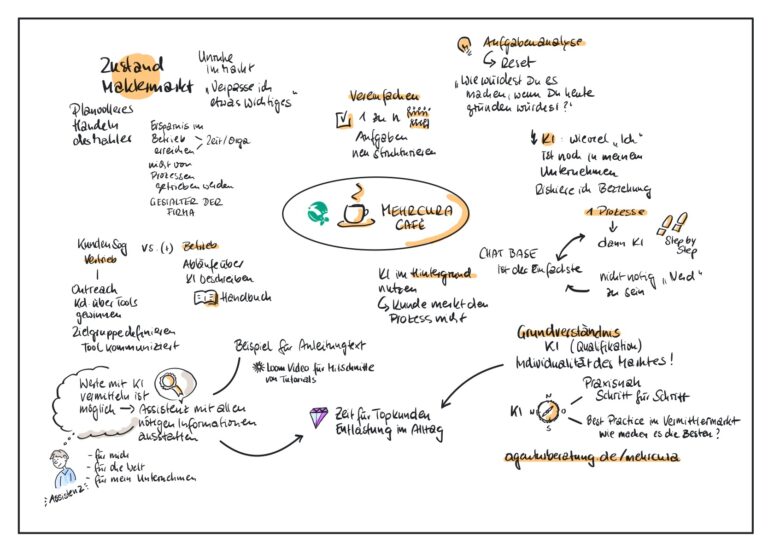 Zustand
Maklermarkt
Unruhe
im Markt
"Verpasse ich
etwas Wichtiges"
Planvolleres
Handeln
des Maklers
Ersparnis im
Betrieb
erreichen
Zeit/Orga
nicht von
Prozessen
getrieben werden
GESTALTER DER
FIRMA
Vereinfachen
1 zu n
Aufgaben
neu strukturieren
Aufgabenanalyse
Reset
"Wie würdest Du es
machen, wenn Du heute
gründen würdest?"
KI: wieviel "Ich"
ist noch in meinem
Unternehmen
Riskiere ich Beziehung
MEHRCURA
CAFÉ
1 Prozesse
dann KI
Step by
Step
CHAT BASE
ist der Einfachste
nicht nötig "Nerd"
zu sein
KundenSog
Vertrieb
vs. (1)
Betrieb
Abläufe über
KI beschreiben
Handbuch
Outreach
Kd. über Tools
gewinnen
Zielgruppe definieren
Tool kommuniziert
KI im Hintergrund
nutzen
Kunde merkt den
Prozess nicht
Grundverständnis
KI (Qualifikation)
Individualität des Marktes!
Praxisnah
Schritt für Schritt
KI
N
O
S
Best Practice im Vermittlermarkt
Wie machen es die Besten?
agarkiberatung.de/mehrcura
Beispiel für Anleitungtext
Loom Video für Mitschnitte
von Tutorials
Werte mit KI
vermitteln ist
möglich → Assistent mit allen
nötigen Informationen
ausstatten
Zeit für Topkunden
Entlastung im Alltag
- für mich
- für die Welt
- für mein Unternehmen
Assistenz